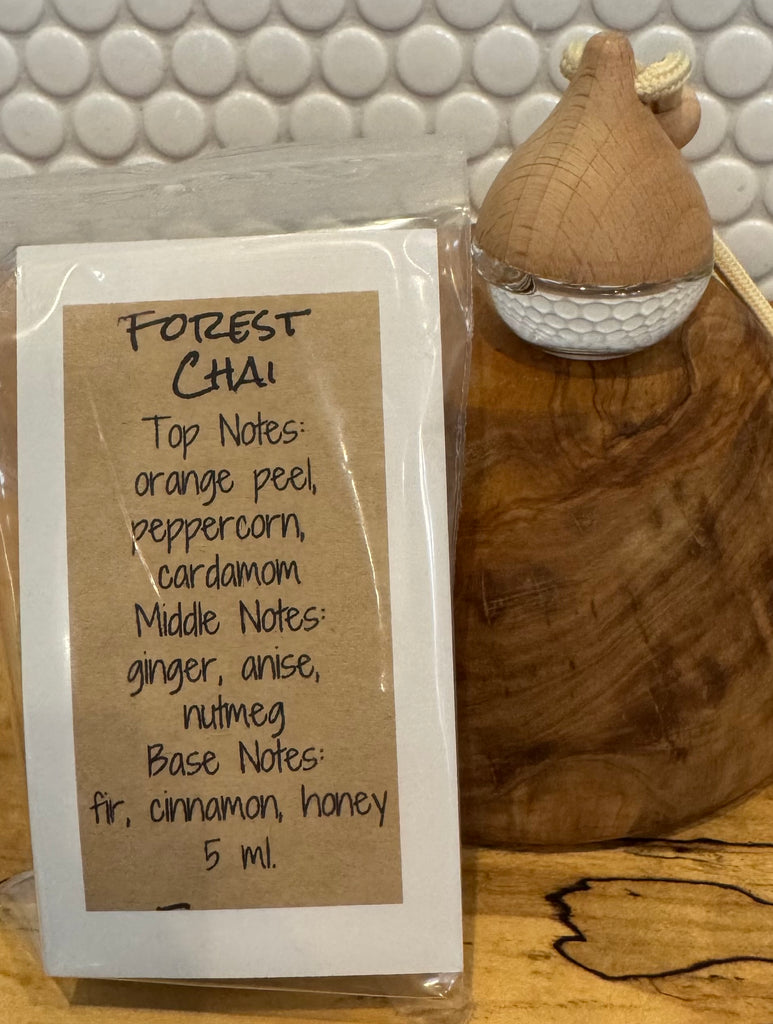 FOREST
CHAI
Top Notes:
orange peel,
peppercorn,
cardamom
Middle Notes:
ginger, anise,
nutmeg
Base Notes:
fir, cinnamon, honey
5 ml.